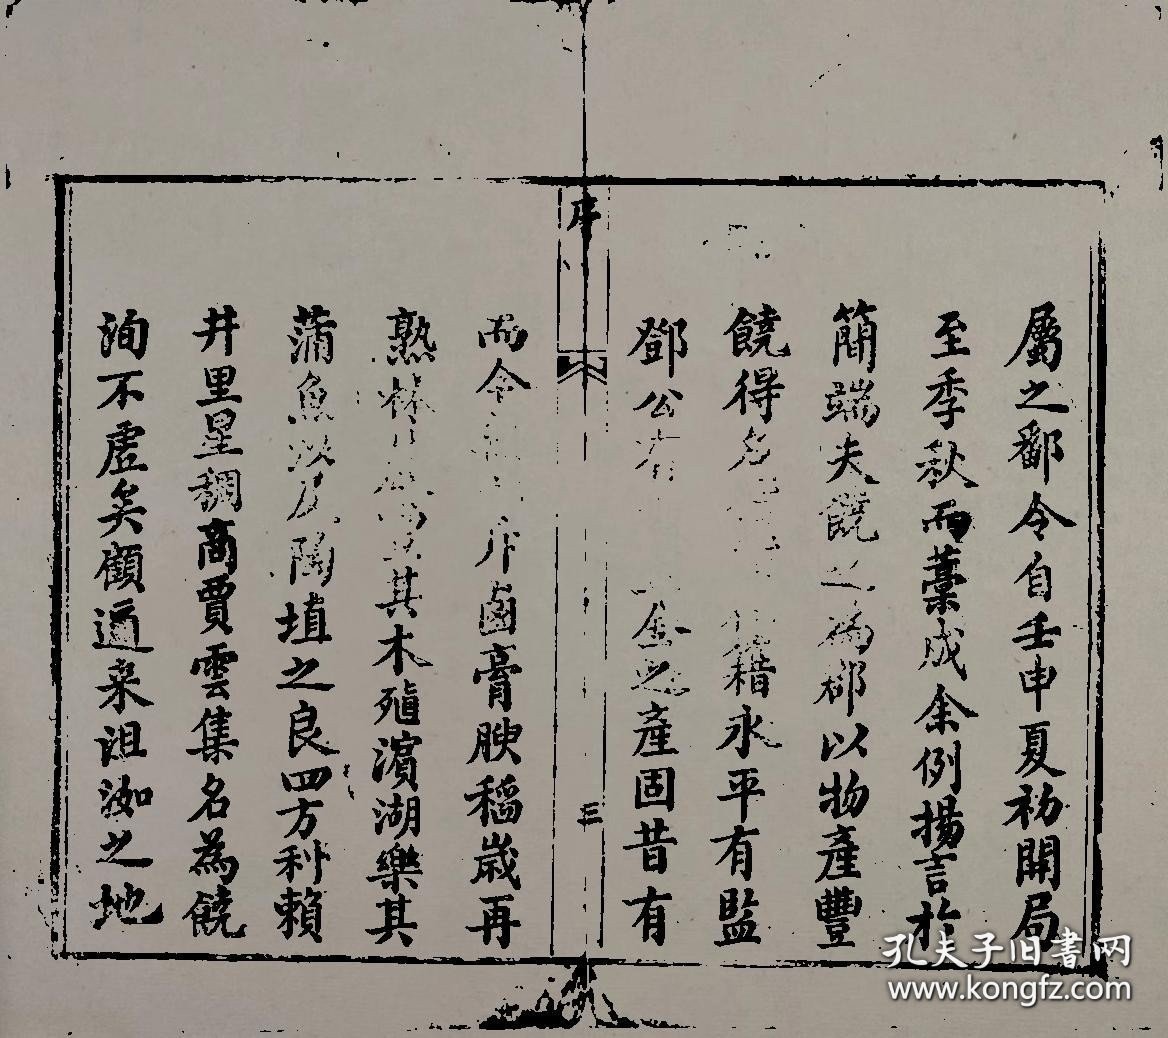 屬之鄱令自壬申夏初開局
至季秋而藁成余例揚言於
簡端夫饒之為郡以物產豐
饒得名 籍永平有監
鄧公有 金之產固昔有
序
三
而今 斥鹵膏腴稻歲再
熟林 其木殖濱湖樂其
蒲魚以及陶埴之良四方利賴
井里星稠商賈雲集名為饒
洵不虛矣顧邇來沮洳之地
孔夫子旧書网
www.kongfz.com